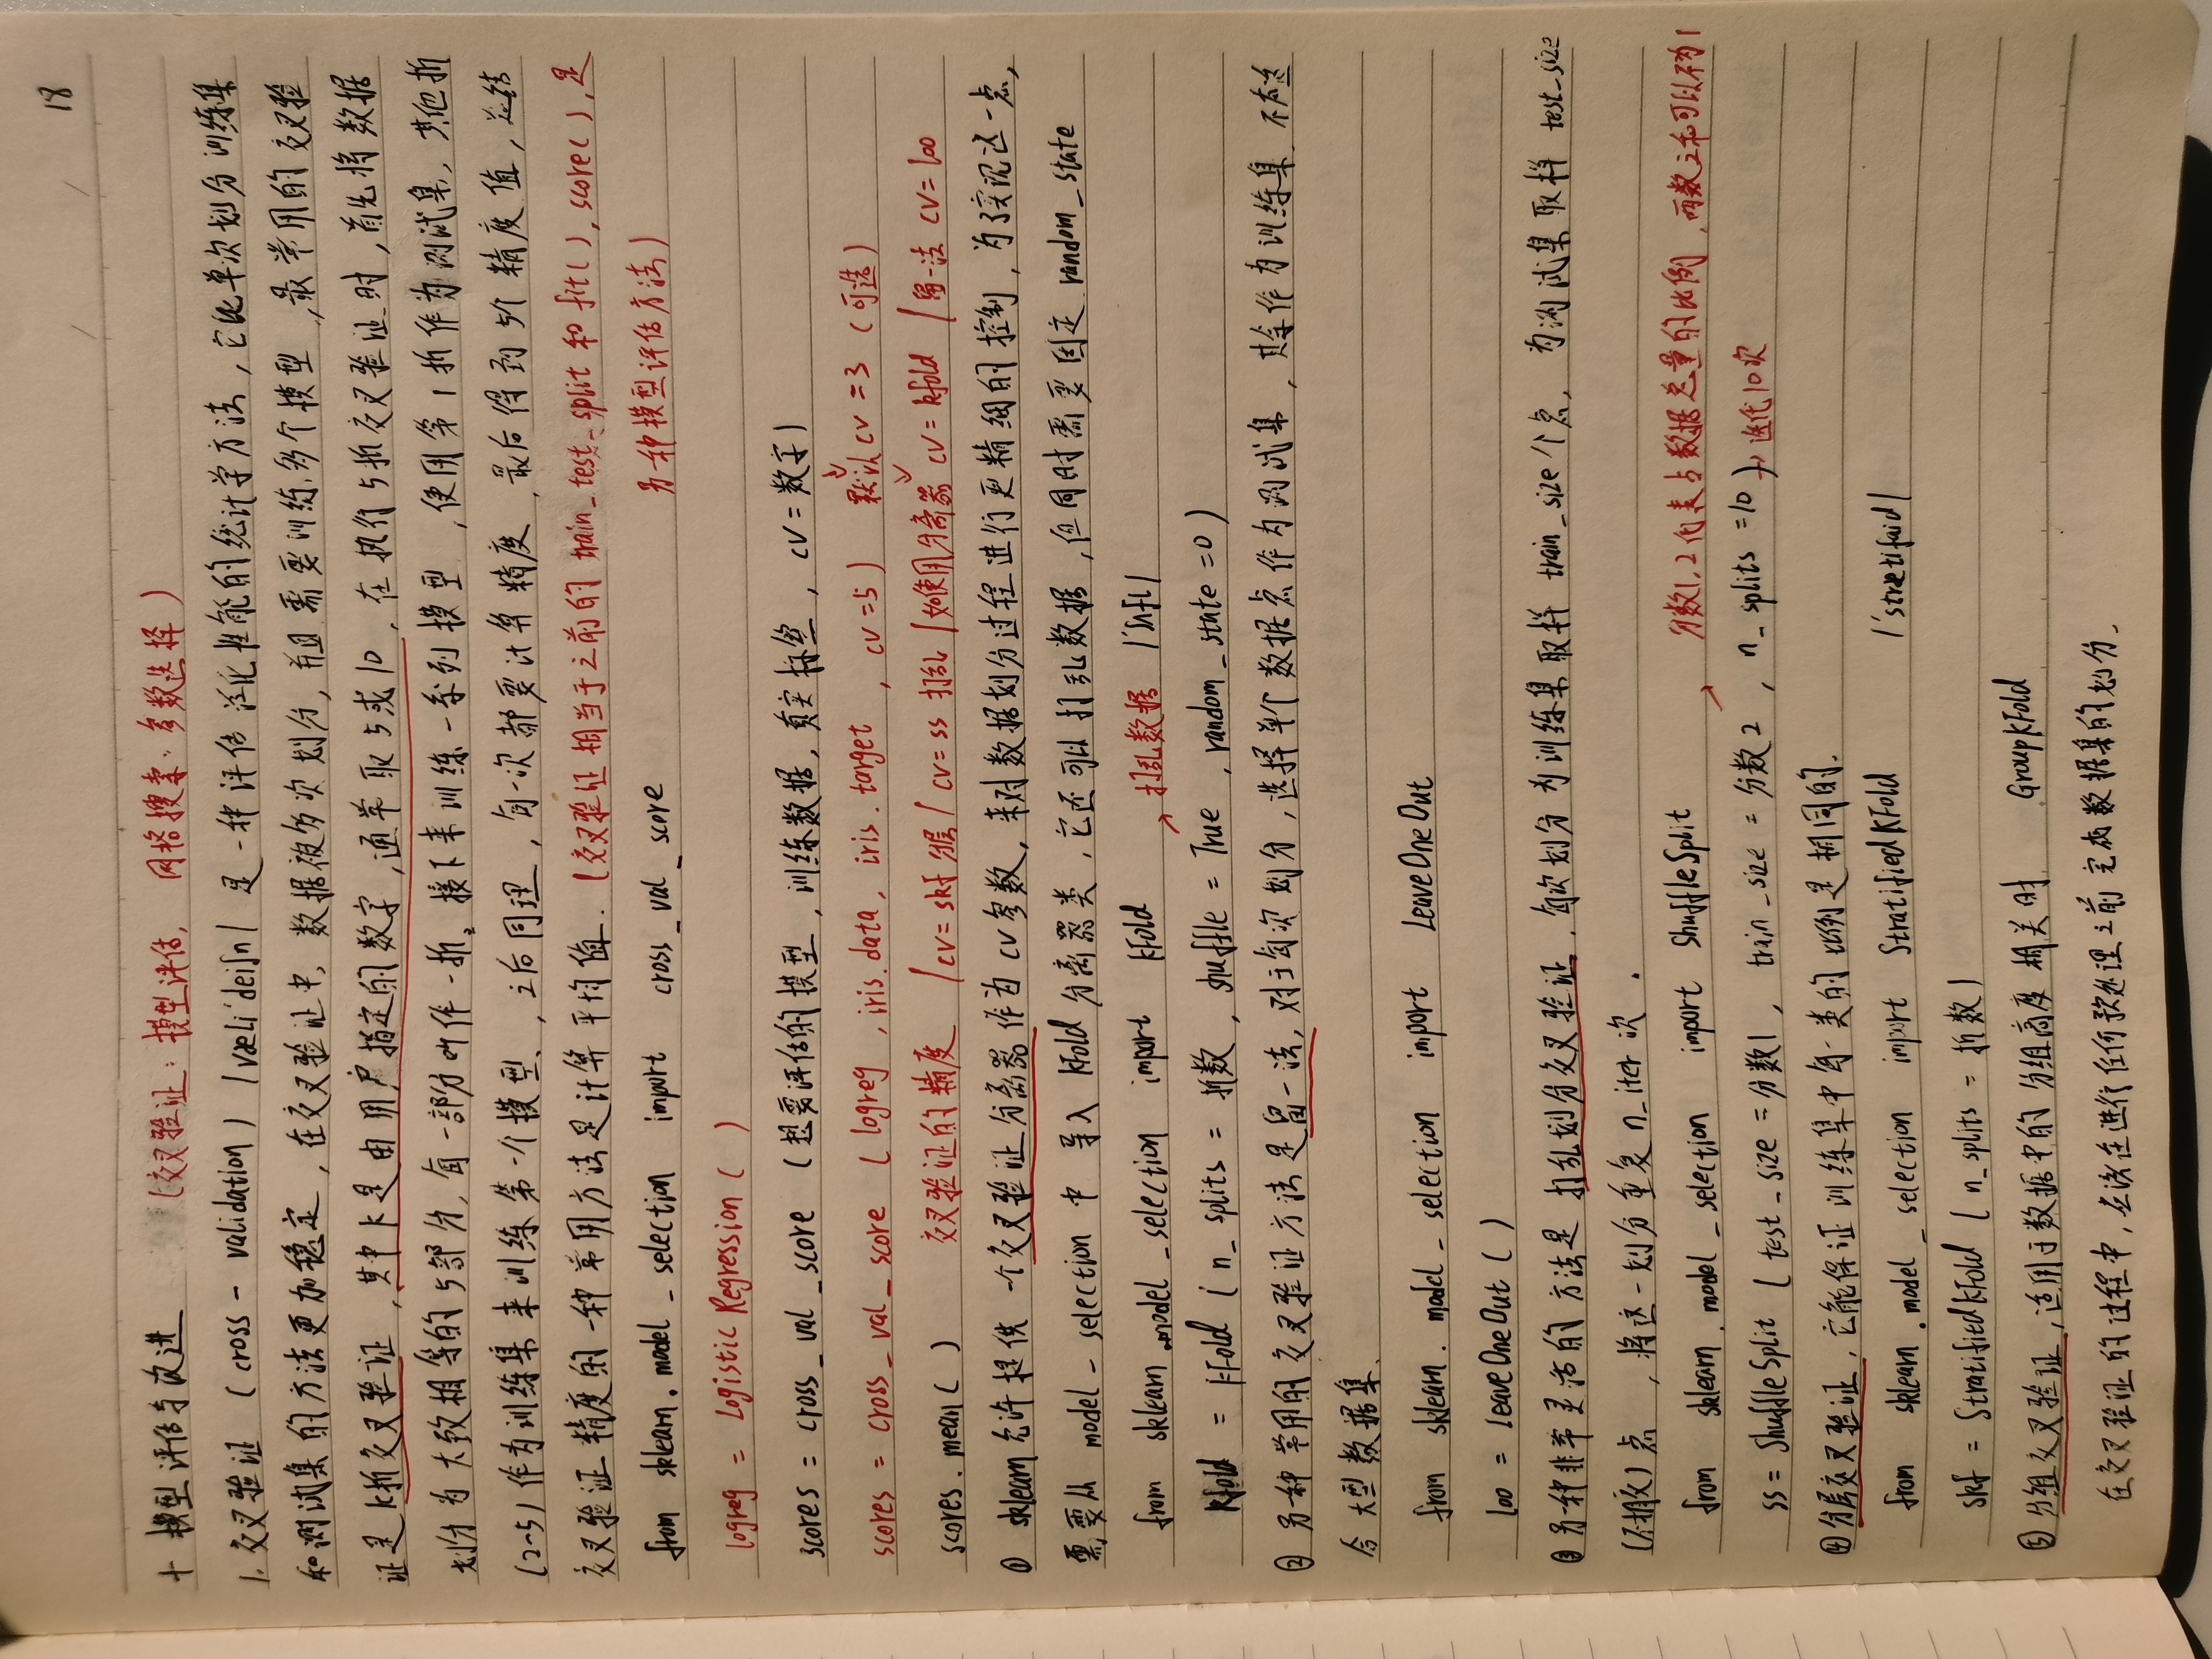 18
十 模型评估与改进 (交叉验证：模型评估，网格搜索：参数选择)
1. 交叉验证 (cross-validation) 是一种评估泛化性能的统计学方法，它比单次划分训练集
和测试集的方法更加稳定，在交叉验证中，数据被多次划分，并且需要训练多个模型，最常用的交叉验
证是k折交叉验证，其中k是由用户指定的数字，通常取5或10，在执行5折交叉验证时，首先将数据
划分为大致相等的5部分，每一部分叫作一折。接下来训练一系列模型，使用第1折作为测试集，其他折
(2~5)作为训练集来训练第一个模型，之后同理，每一次都要计算精度，最后得到5个精度值，总结
交叉验证精度的一种常用方法是计算平均值．(交叉验证相当于之前的train_test_split和fit(), score(), 是
另一种模型评估方法)
from sklearn.model_selection import cross_val_score
logreg = Logistic Regression ( )
scores = cross_val_score (想要评估的模型，训练数据，真实标签，cv=数字)
默认cv=3 (可选)
scores = cross_val_score (logreg, iris.data, iris.target, cv=5)
交叉验证的精度 (cv=skf 分层 / cv=ss 打乱 / 如使用分离器 cv=kfold / 留一法 cv=loo
scores.mean( )
① sklearn允许提供一个交叉验证分离器作为cv参数，来对数据划分过程进行更精细的控制，为了实现这一点，
需要从model_selection中导入KFold分离器类，它还可以打乱数据，但同时需要固定random_state
from sklearn.model_selection import KFold
打乱数据
kfold = KFold (n_splits = 折数, shuffle = True, random_state=0)
② 另一种常用的交叉验证方法是留一法，对于每次划分，选择单个数据点作为测试集，其余作为训练集．不适
合大型数据集
from sklearn.model_selection import LeaveOneOut
loo = LeaveOneOut ( )
③ 另一种非常灵活的方法是打乱划分交叉验证，每次划分为训练集取样train_size个点，为测试集取样test_size
(不相交)点，将这一划分重复n_iter次．
from sklearn.model_selection import ShuffleSplit
分数1, 2代表占数据总量的比例，两数之和可以不为1
ss = ShuffleSplit (test_size = 分数1, train_size = 分数2, n_splits = 10) → 迭代10次
④ 分层交叉验证，它能保证训练集中每一类的比例是相同的．
from sklearn.model_selection import StratifiedKFold
skf = StratifiedKFold (n_splits = 折数)
⑤ 分组交叉验证，适用于数据中的分组高度相关时 GroupKFold
在交叉验证的过程中，应该在进行任何预处理之前完成数据集的划分．